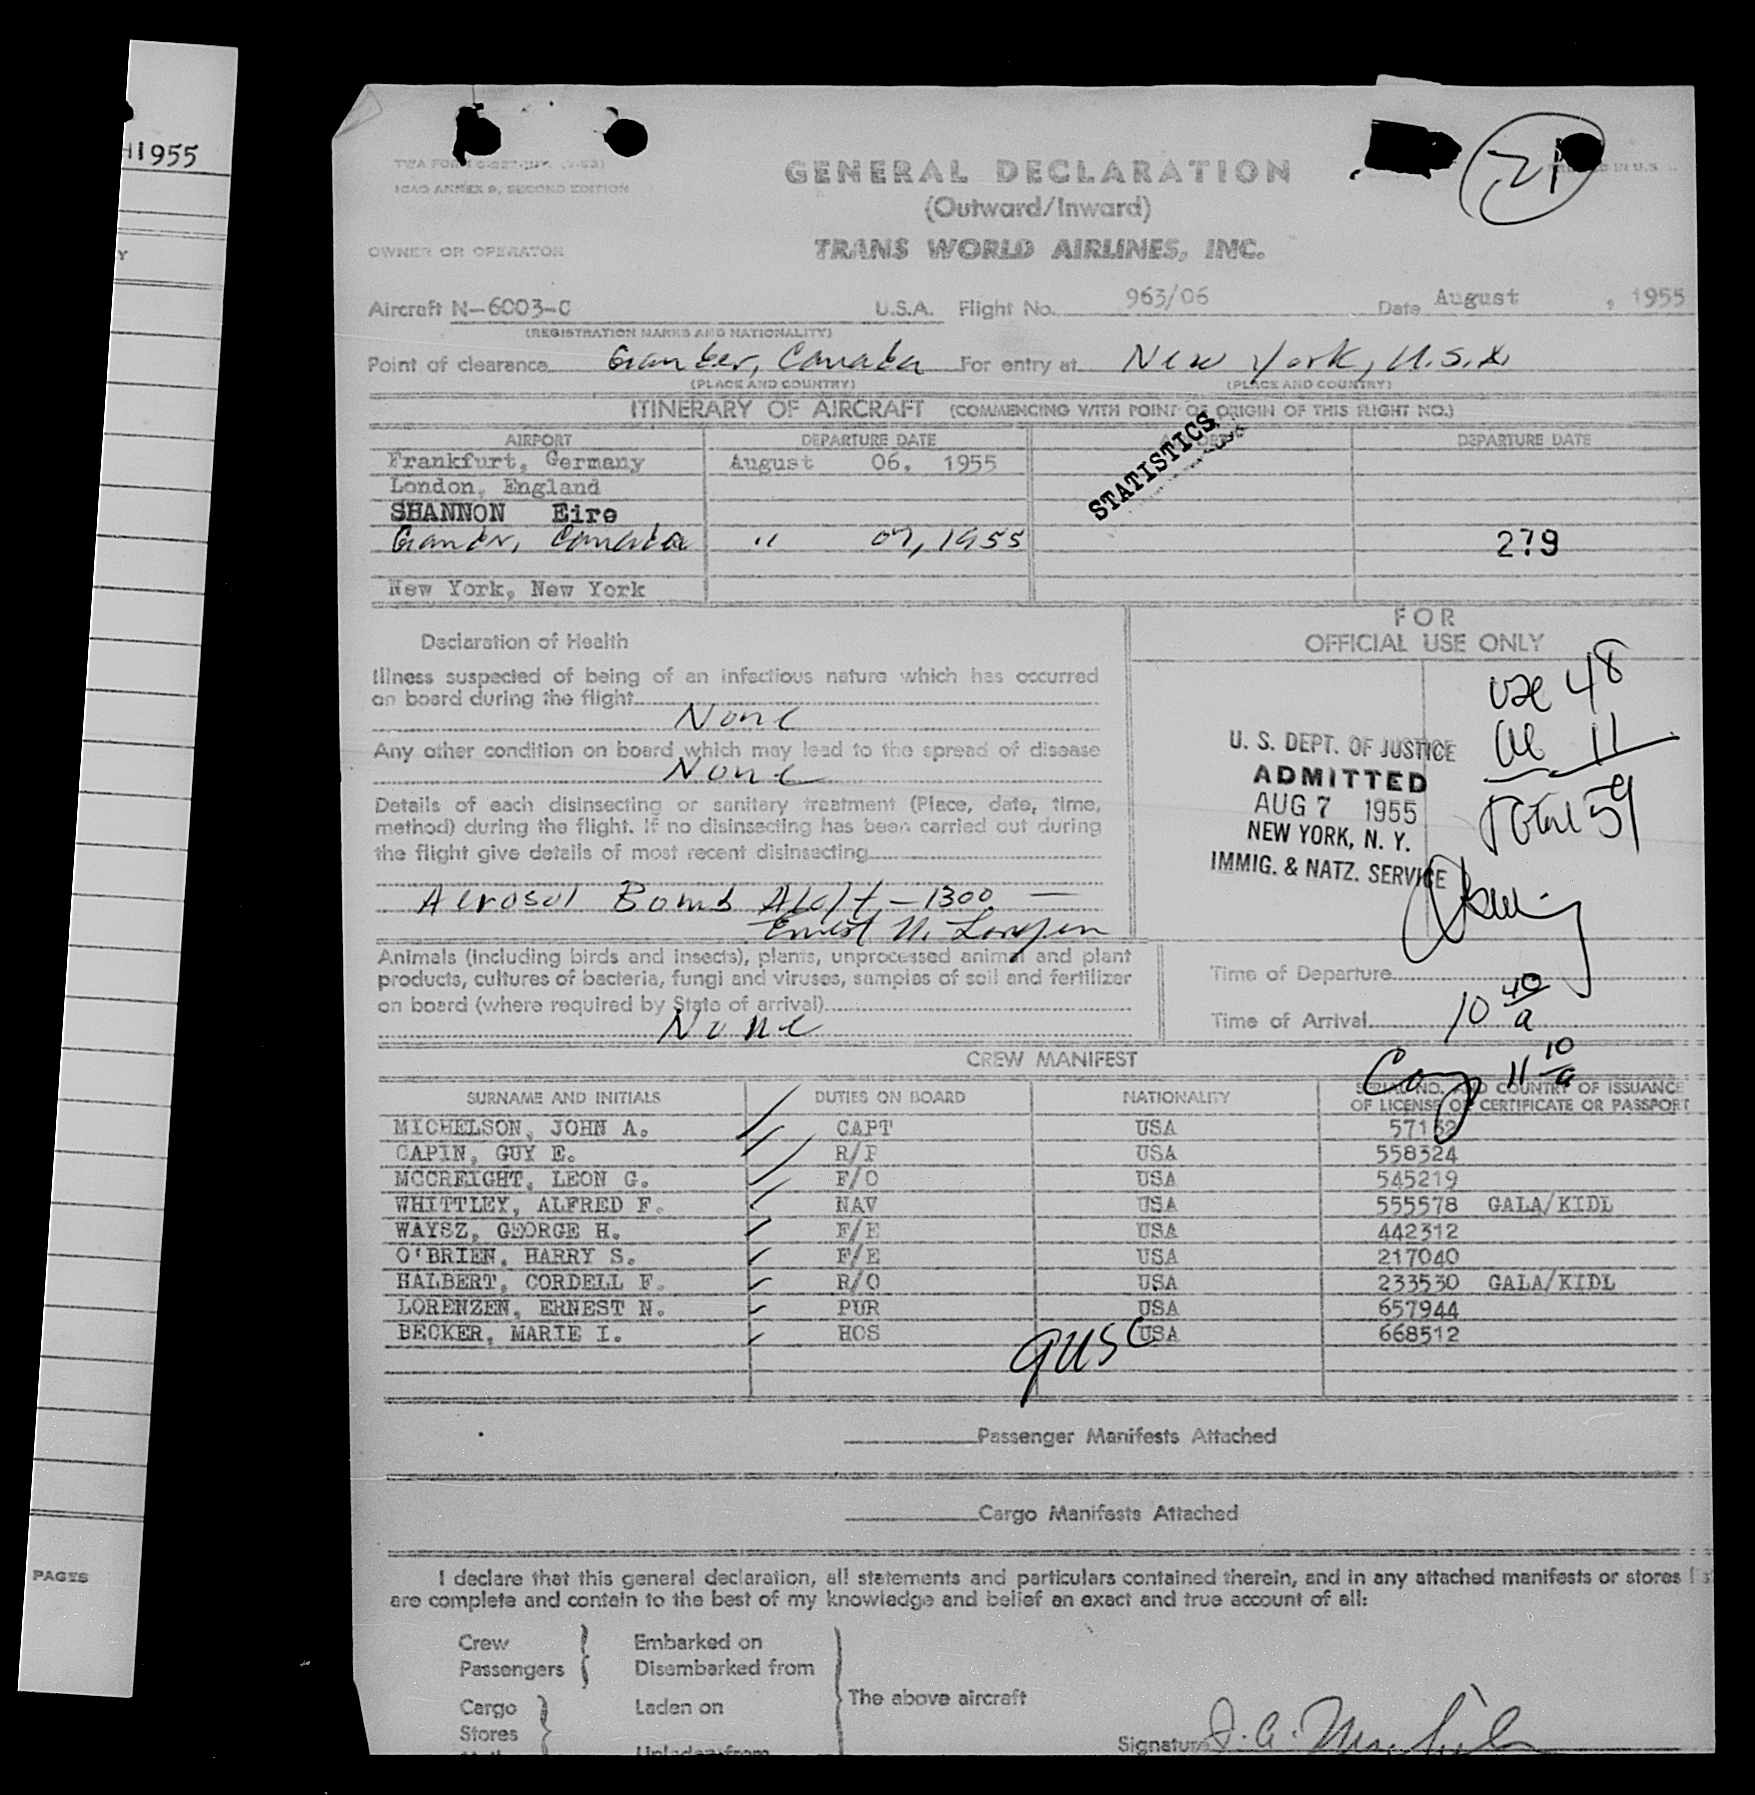 1955
Y
PAGES
ICAO ANNEX 9, SECOND EDITION
GENERAL DECLARATION
21
(Outward/Inward)
OWNER OR OPERATOR
TRANS WORLD AIRLINES, INC.
Aircraft N-6003-C U.S.A. Flight No. 963/06 Date August , 1955
(REGISTRATION MARKS AND NATIONALITY)
Point of clearance Gander, Canada For entry at New York, U.S.A.
(PLACE AND COUNTRY) (PLACE AND COUNTRY)
ITINERARY OF AIRCRAFT (COMMENCING WITH POINT OF ORIGIN OF THIS FLIGHT NO.)
AIRPORT DEPARTURE DATE DEPARTURE DATE
STATISTICS
Frankfurt, Germany August 06, 1955
London, England
SHANNON Eire
Gander, Canada " 07, 1955 279
New York, New York
FOR
OFFICIAL USE ONLY
Declaration of Health
Illness suspected of being of an infectious nature which has occurred
on board during the flight
None
Any other condition on board which may lead to the spread of disease
None
Details of each disinsecting or sanitary treatment (Place, date, time,
method) during the flight. If no disinsecting has been carried out during
the flight give details of most recent disinsecting
Aerosol Bomb Aloft - 1300
Ernest N. Lorenzen
USC 48
11
Total 59
U. S. DEPT. OF JUSTICE
ADMITTED
AUG 7 1955
NEW YORK, N. Y.
IMMIG. & NATZ. SERVICE
Animals (including birds and insects), plants, unprocessed animal and plant
products, cultures of bacteria, fungi and viruses, samples of soil and fertilizer
on board (where required by State of arrival)
None
Time of Departure
Time of Arrival 10 40 a
11 10 a
CREW MANIFEST
SURNAME AND INITIALS DUTIES ON BOARD NATIONALITY SERIAL NO. AND COUNTRY OF ISSUANCE
OF LICENSE OR CERTIFICATE OR PASSPORT
MICHELSON, JOHN A. CAPT USA
CAPIN, GUY E. R/P USA 558324
MCCREIGHT, LEON G. F/O USA 545219
WHITTLEY, ALFRED F. NAV USA 555578 GALA/KIDL
WAYSZ, GEORGE H. F/E USA 442312
O'BRIEN, HARRY S. F/E USA 217040
HALBERT, CORDELL F. R/O USA 233530 GALA/KIDL
LORENZEN, ERNEST N. PUR USA 657944
BECKER, MARIE I. HOS USA 668512
9 USC
Passenger Manifests Attached
Cargo Manifests Attached
I declare that this general declaration, all statements and particulars contained therein, and in any attached manifests or stores
are complete and contain to the best of my knowledge and belief an exact and true account of all:
Crew Embarked on
Passengers Disembarked from
The above aircraft
Cargo Laden on
Stores
Unladen from
Signature J. A. Michelson